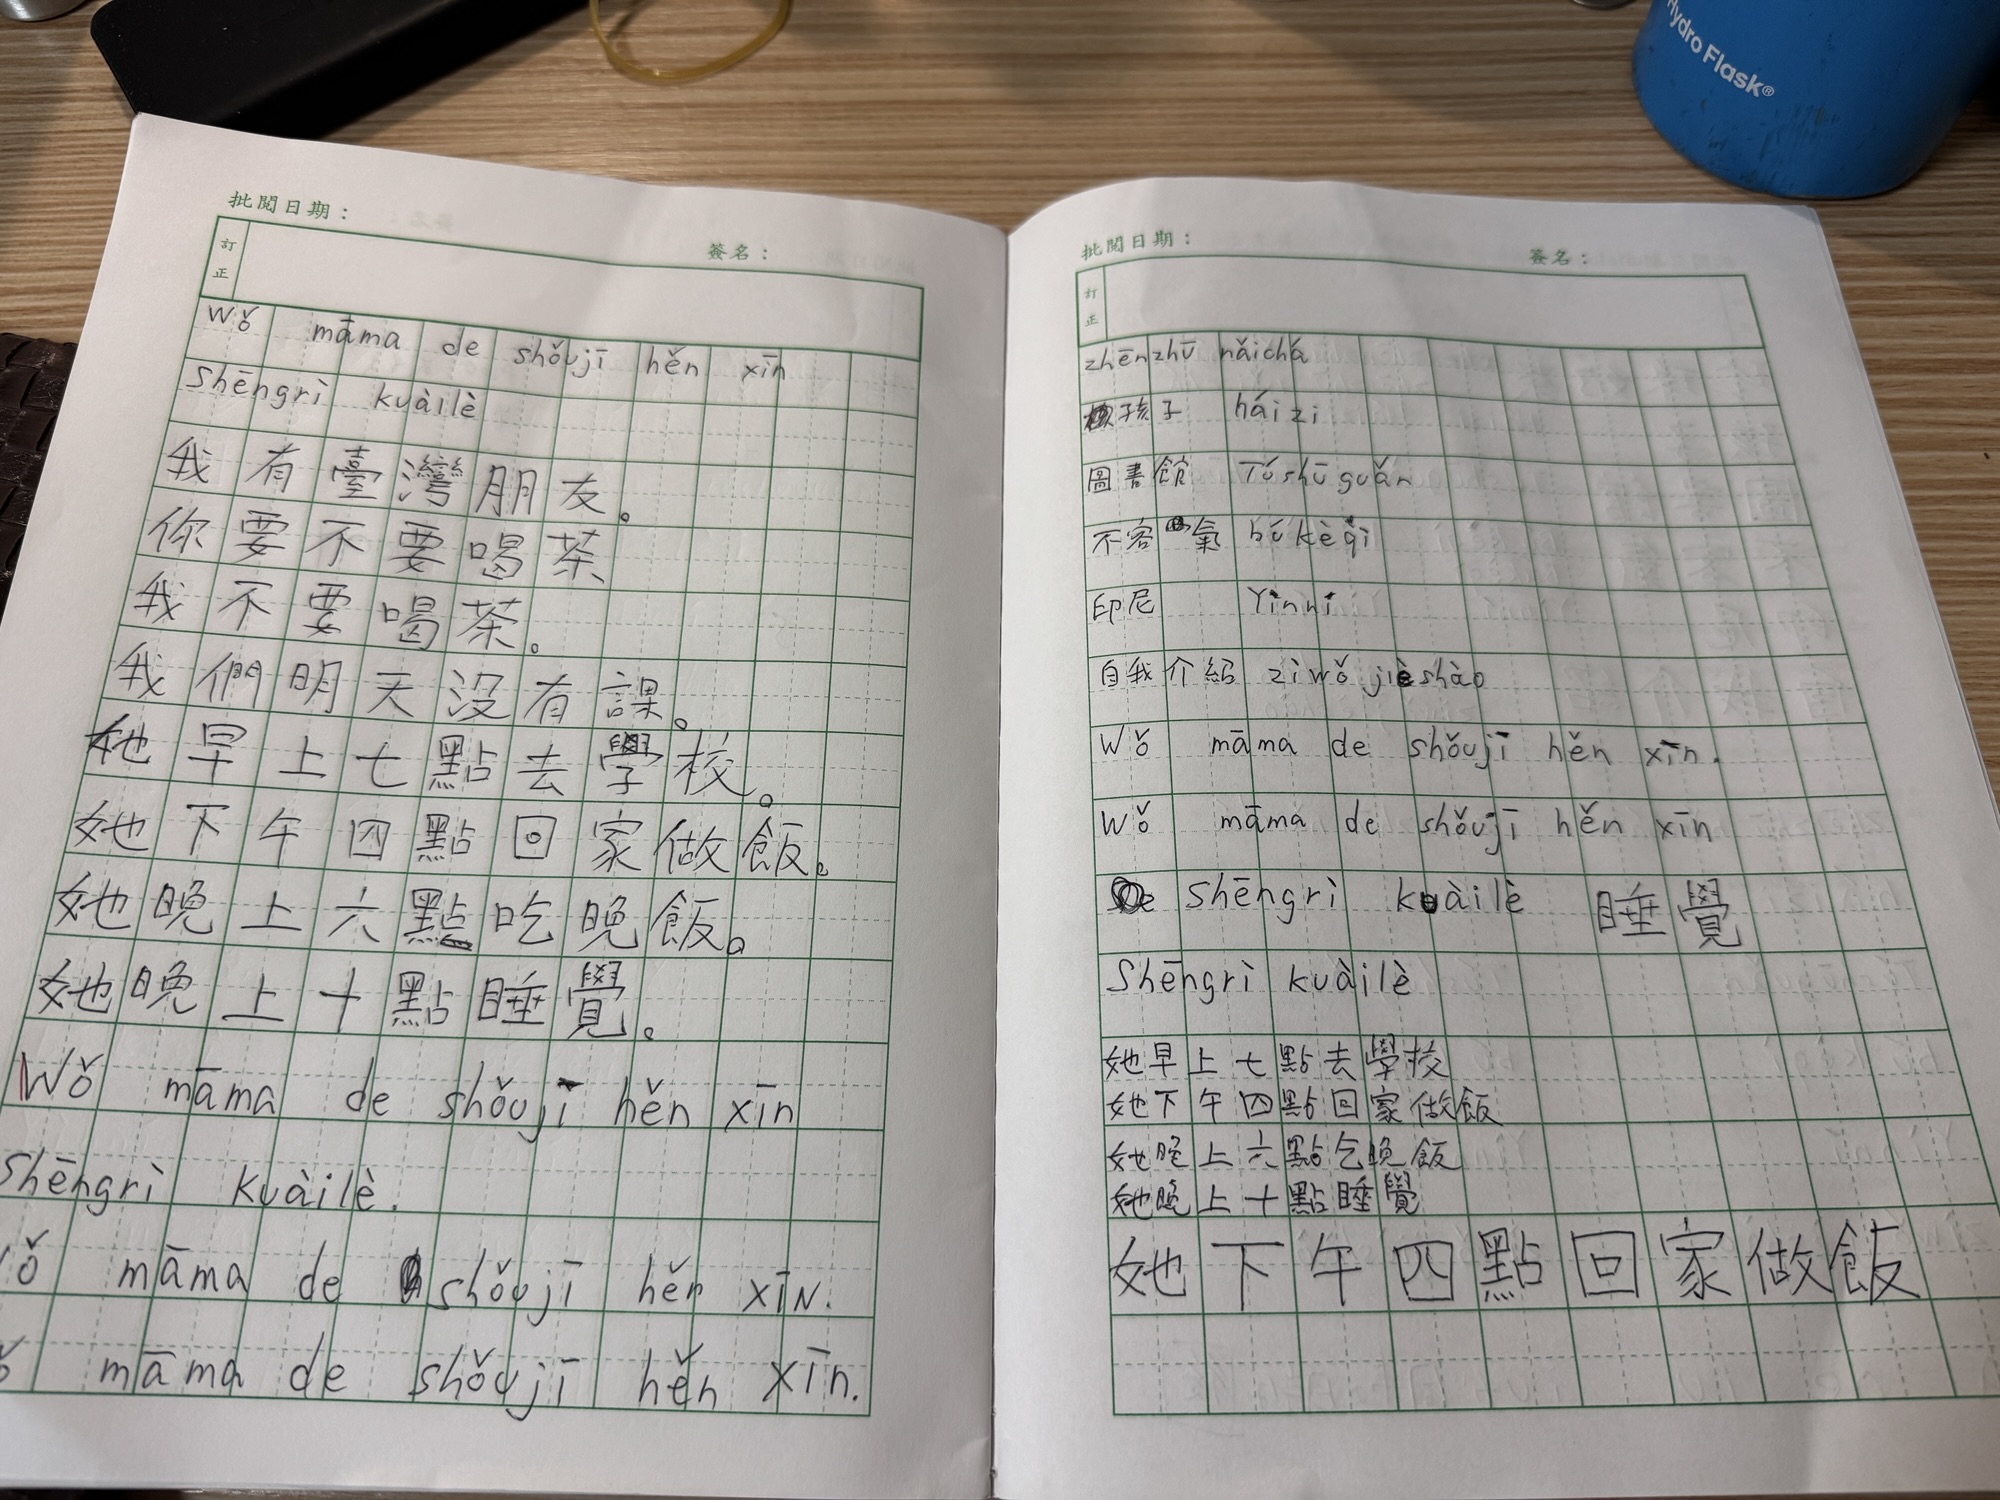 Hydro Flask®
批閱日期：
簽名：
訂正
Wǒ māma de shǒujī hěn xīn
Shēngrì kuàilè
我有臺灣朋友。
你要不要喝茶
我不要喝茶。
我們明天沒有課。
她早上七點去學校。
她下午四點回家做飯。
她晚上六點吃晚飯。
她晚上十點睡覺。
Wǒ māma de shǒujī hěn xīn
Shēngrì kuàilè.
Wǒ māma de shǒujī hěn xīn.
māma de shǒujī hěn xīn.
批閱日期：
簽名：
訂正
zhēnzhū nǎichá
孩子 háizi
圖書館 Túshūguǎn
不客氣 bú kèqì
印尼 Yìnní
自我介紹 zìwǒ jièshào
Wǒ māma de shǒujī hěn xīn.
Wǒ māma de shǒujī hěn xīn
Shēngrì kuàilè 睡覺
Shēngrì kuàilè
她早上七點去學校
她下午四點回家做飯
她晚上六點吃晚飯
她晚上十點睡覺
她下午四點回家做飯